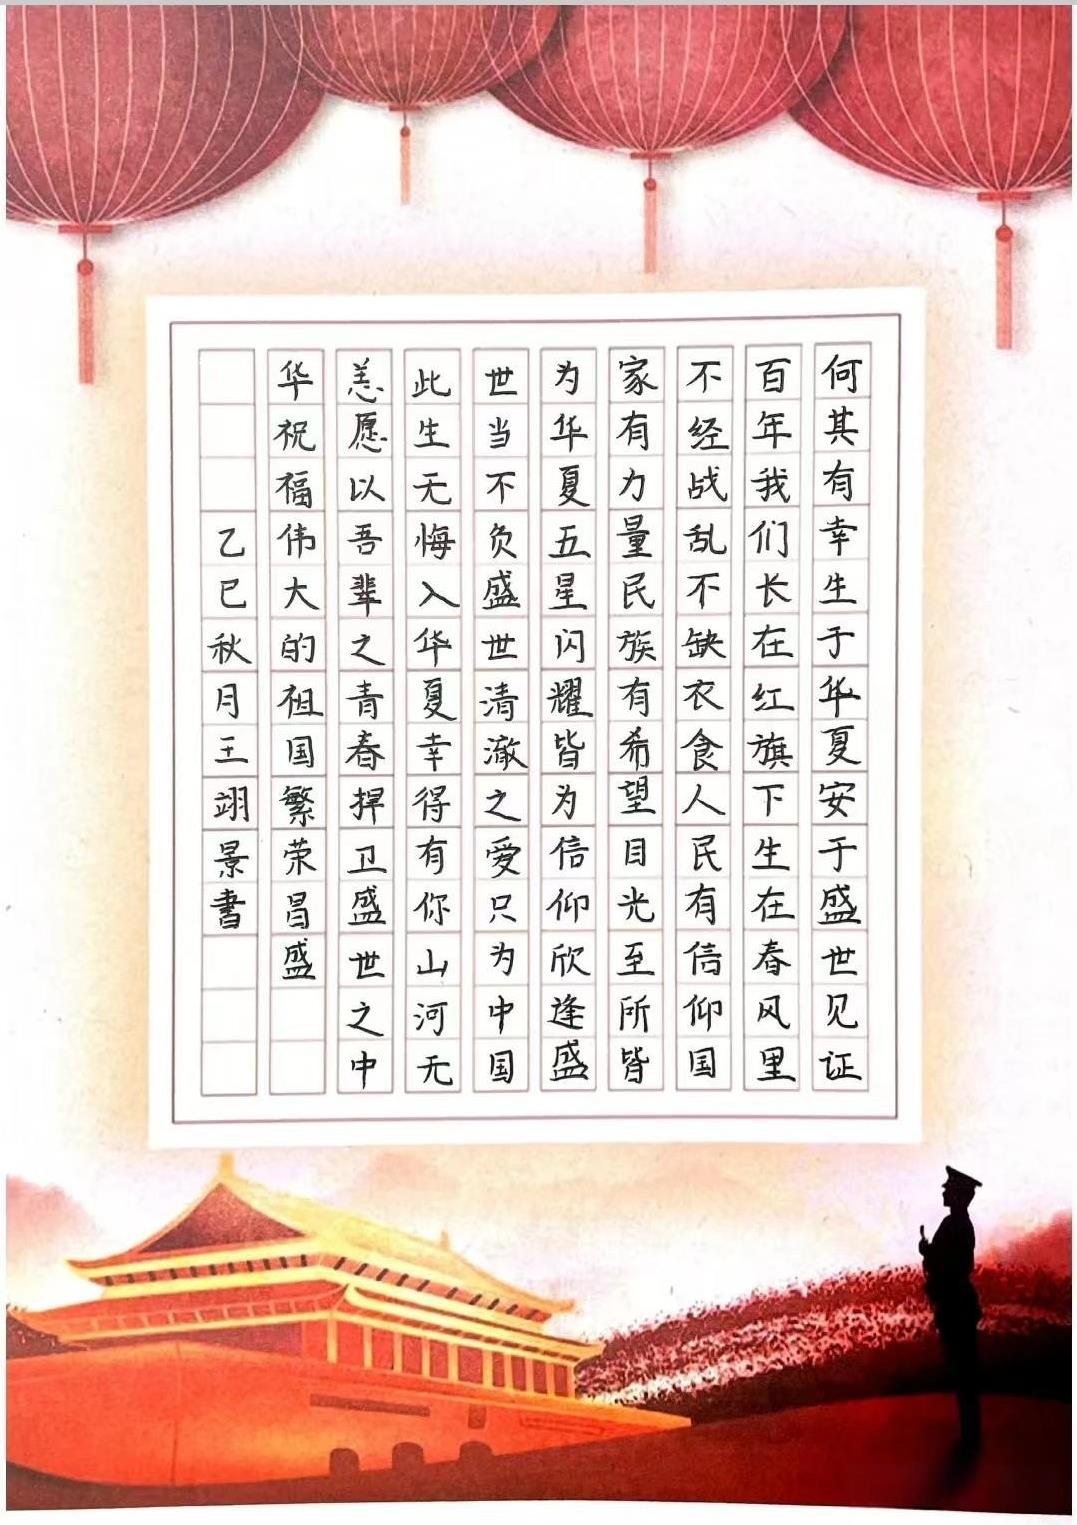 何其有幸生于华夏安于盛世见证
百年我们长在红旗下生在春风里
不经战乱不缺衣食人民有信仰国
家有力量民族有希望目光至所皆
为华夏五星闪耀皆为信仰欣逢盛
世当不负盛世清澈之爱只为中国
此生无悔入华夏幸得有你山河无
恙愿以吾辈之青春捍卫盛世之中
华祝福伟大的祖国繁荣昌盛
乙巳秋月王翊景書